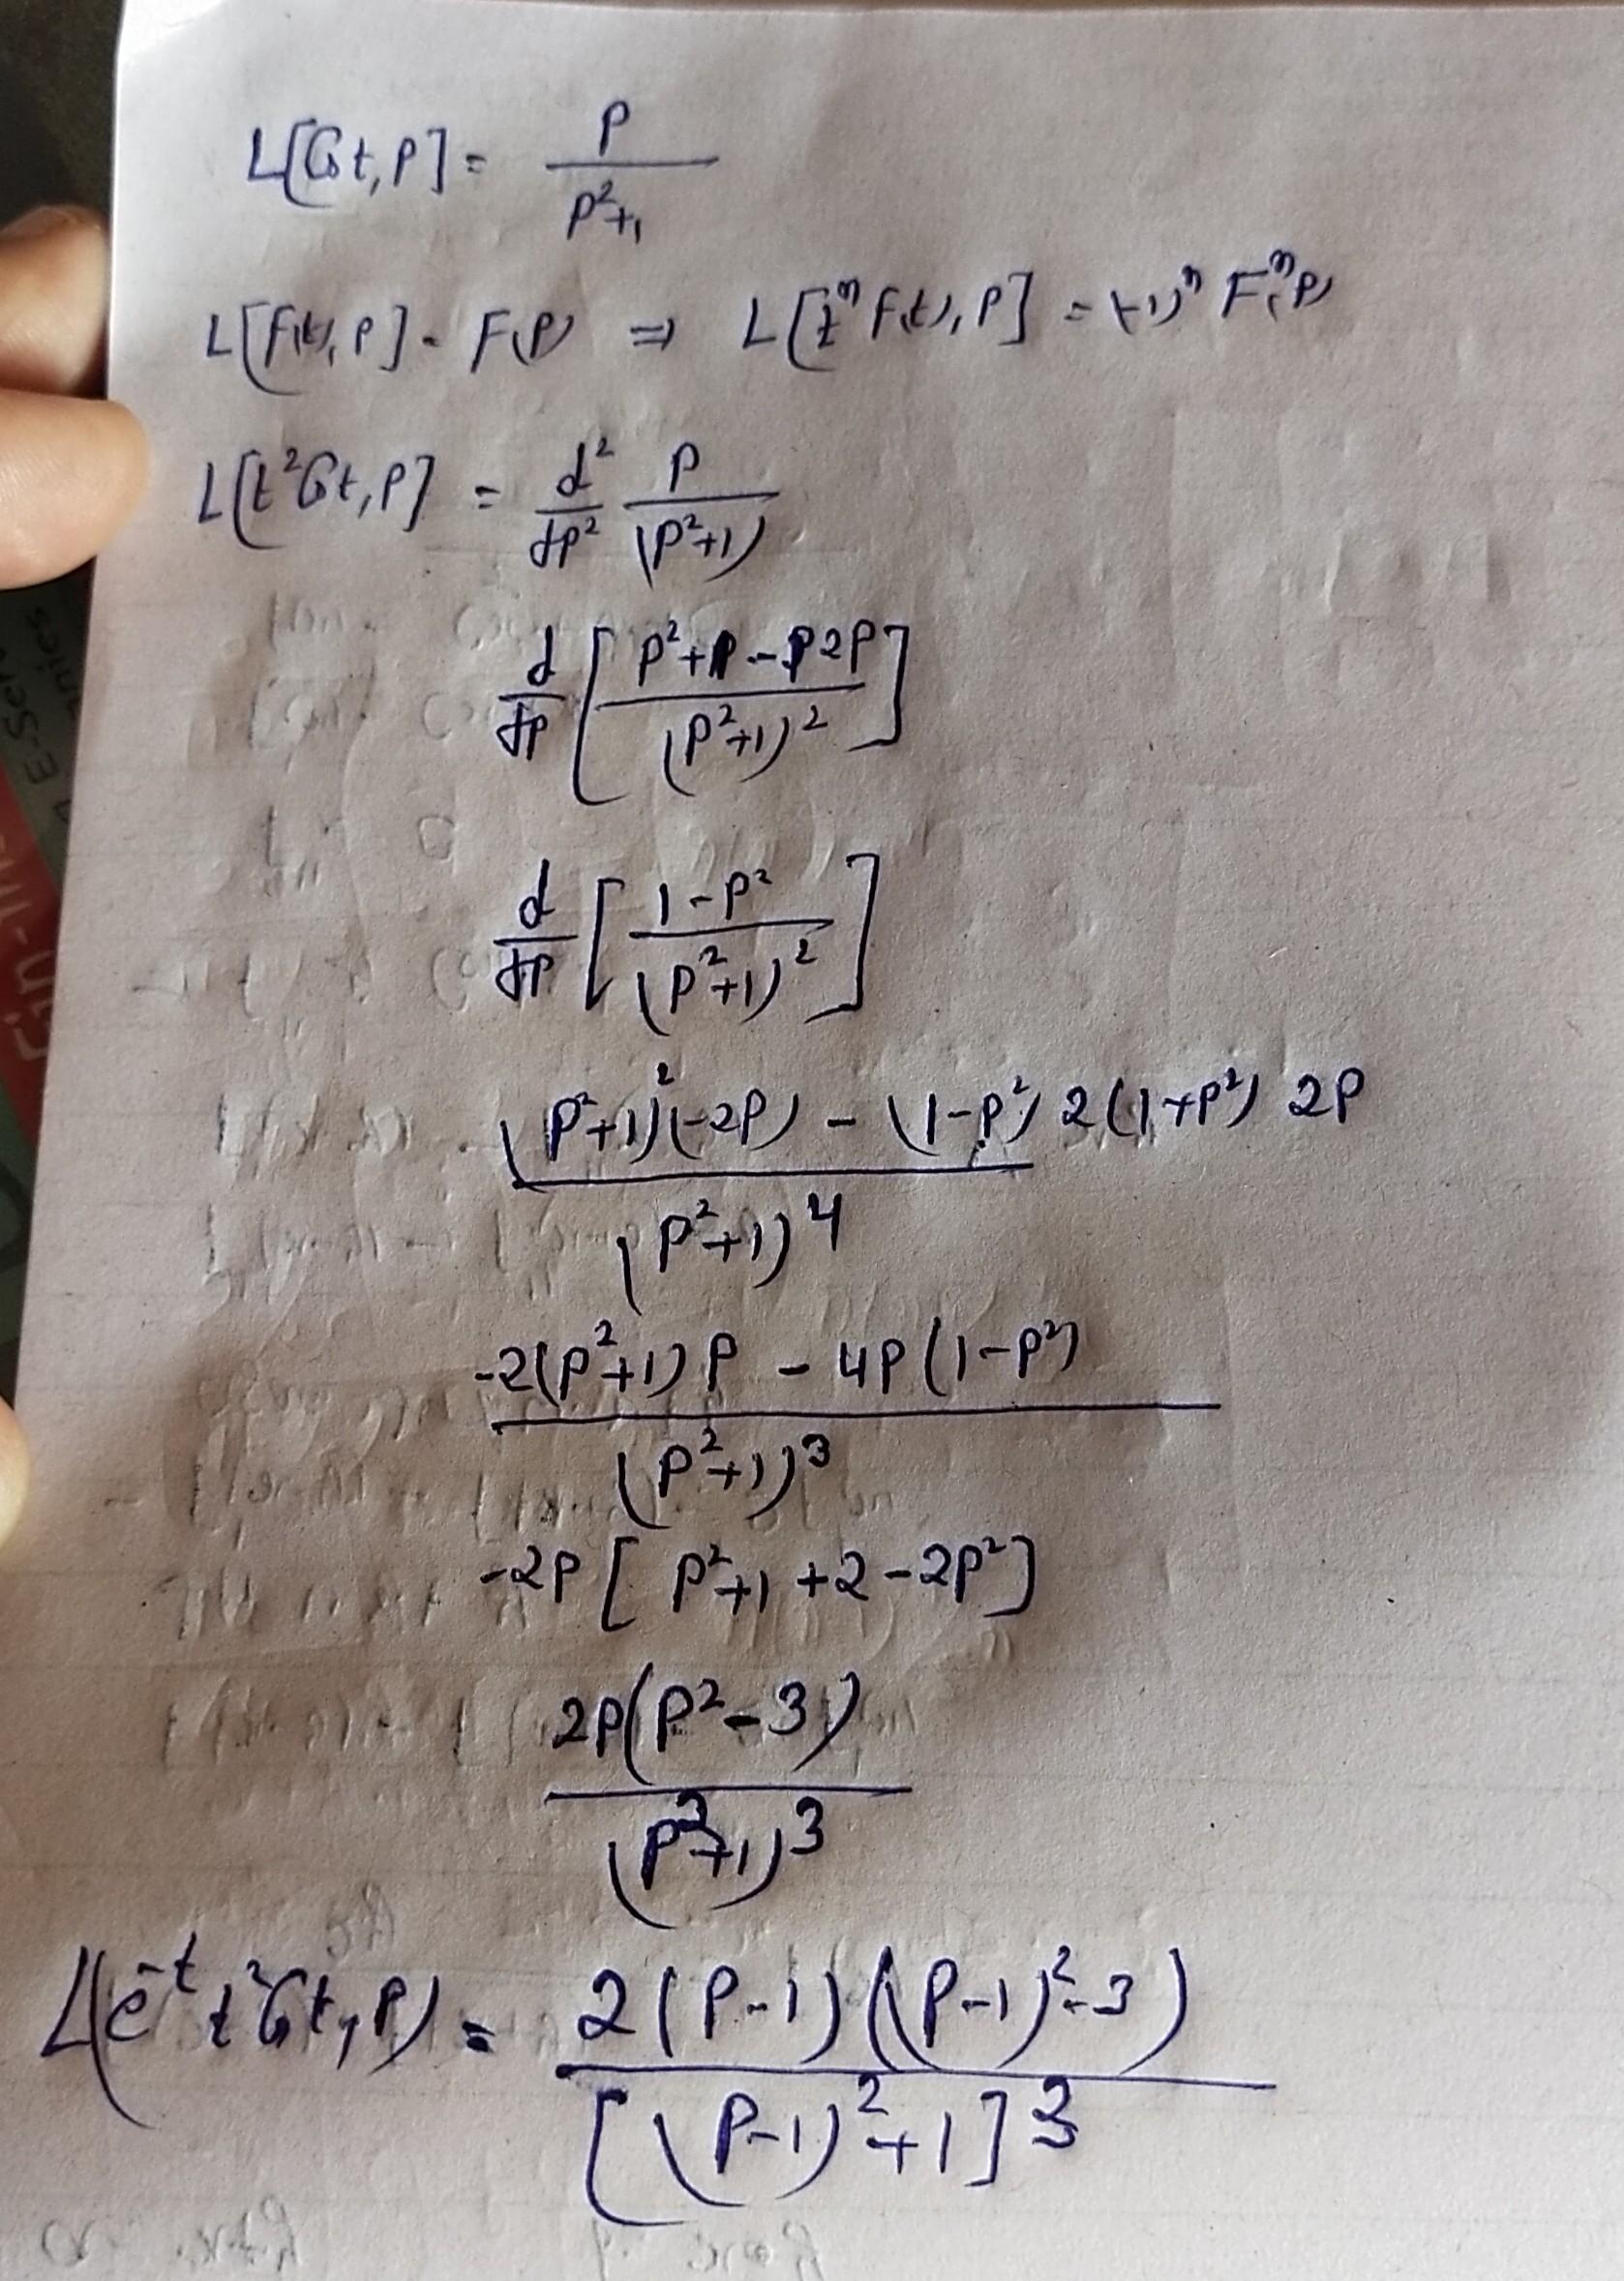 L[Cost,P] = P/(P²+1)
L[f(t),P] = F(P) ⇒ L[tⁿ f(t),P] = (-1)ⁿ Fⁿ(P)
L[t²Cost,P] = d²/dP² P/(P²+1)
d/dP [(P²+1 - P2P)/(P²+1)²]
d/dP [(1-P²)/(P²+1)²]
((P²+1)²(-2P) - (1-P²) 2(1+P²) 2P)/(P²+1)⁴
(-2(P²+1)P - 4P(1-P²))/(P²+1)³
-2P[P²+1+2-2P²]
2P(P²-3)/(P²+1)³
L(e⁻ᵗ t²Cost,P) = 2(P-1)((P-1)²-3)/[(P-1)²+1]³